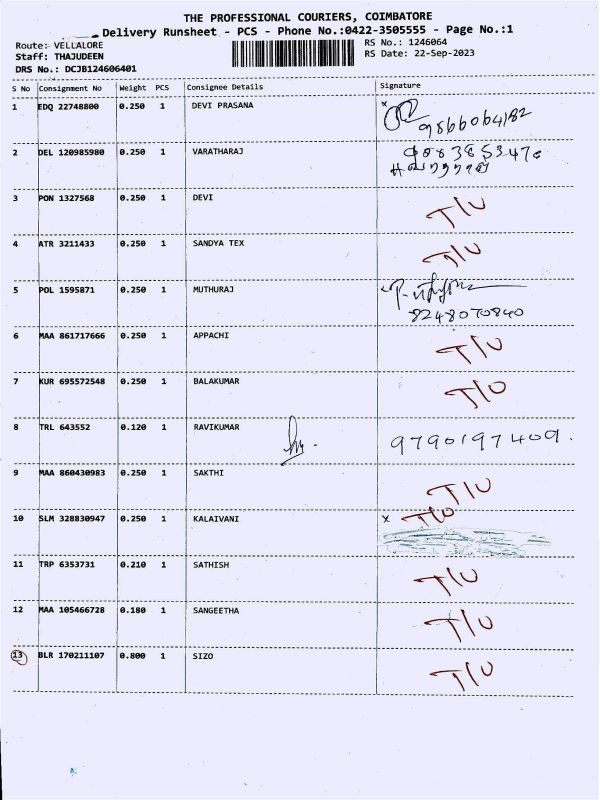 THE PROFESSIONAL COURIERS, COIMBATORE
Delivery Runsheet - PCS - Phone No.:0422-3505555 - Page No.:1
Route:- VELLALORE RS No.: 1246064
Staff: THAJUDEEN RS Date: 22-Sep-2023
DRS No.: DCJB124606401
S No Consignment No Weight PCS Consignee Details Signature
1 EDQ 22748800 0.250 1 DEVI PRASANA x
9566064182
2 DEL 120985980 0.250 1 VARATHARAJ
3 PON 1327568 0.250 1 DEVI T/U
4 ATR 3211433 0.250 1 SANDYA TEX T/U
5 POL 1595871 0.250 1 MUTHURAJ
8248070840
6 MAA 861717666 0.250 1 APPACHI T/U
7 KUR 695572548 0.250 1 BALAKUMAR T/U
8 TRL 643552 0.120 1 RAVIKUMAR 9790197409.
9 MAA 860430983 0.250 1 SAKTHI T/U
10 SLM 328830947 0.250 1 KALAIVANI x T/U
11 TRP 6353731 0.210 1 SATHISH T/U
12 MAA 105466728 0.180 1 SANGEETHA T/U
13 BLR 170211107 0.800 1 SIZO T/U